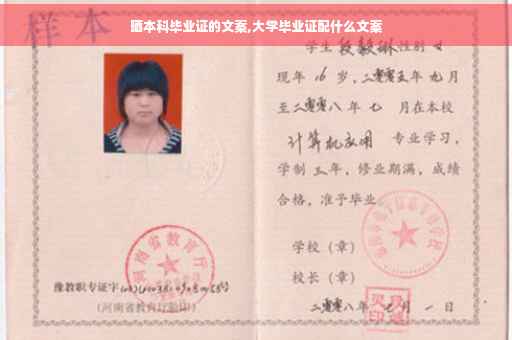 晒本科毕业证的文案,大学毕业证配什么文案
样本
学生 段毅琳 性别 女
现年 16 岁,二零零五年 九 月
至二零零八年 七 月在本校
计算机应用 专业学习,
学制 三 年,修业期满,成绩
合格,准予毕业
学校（章）
校长（章）
二零零八年 七 月 一 日
河南省教育厅
豫教职专证字
(河南省教育厅验印)